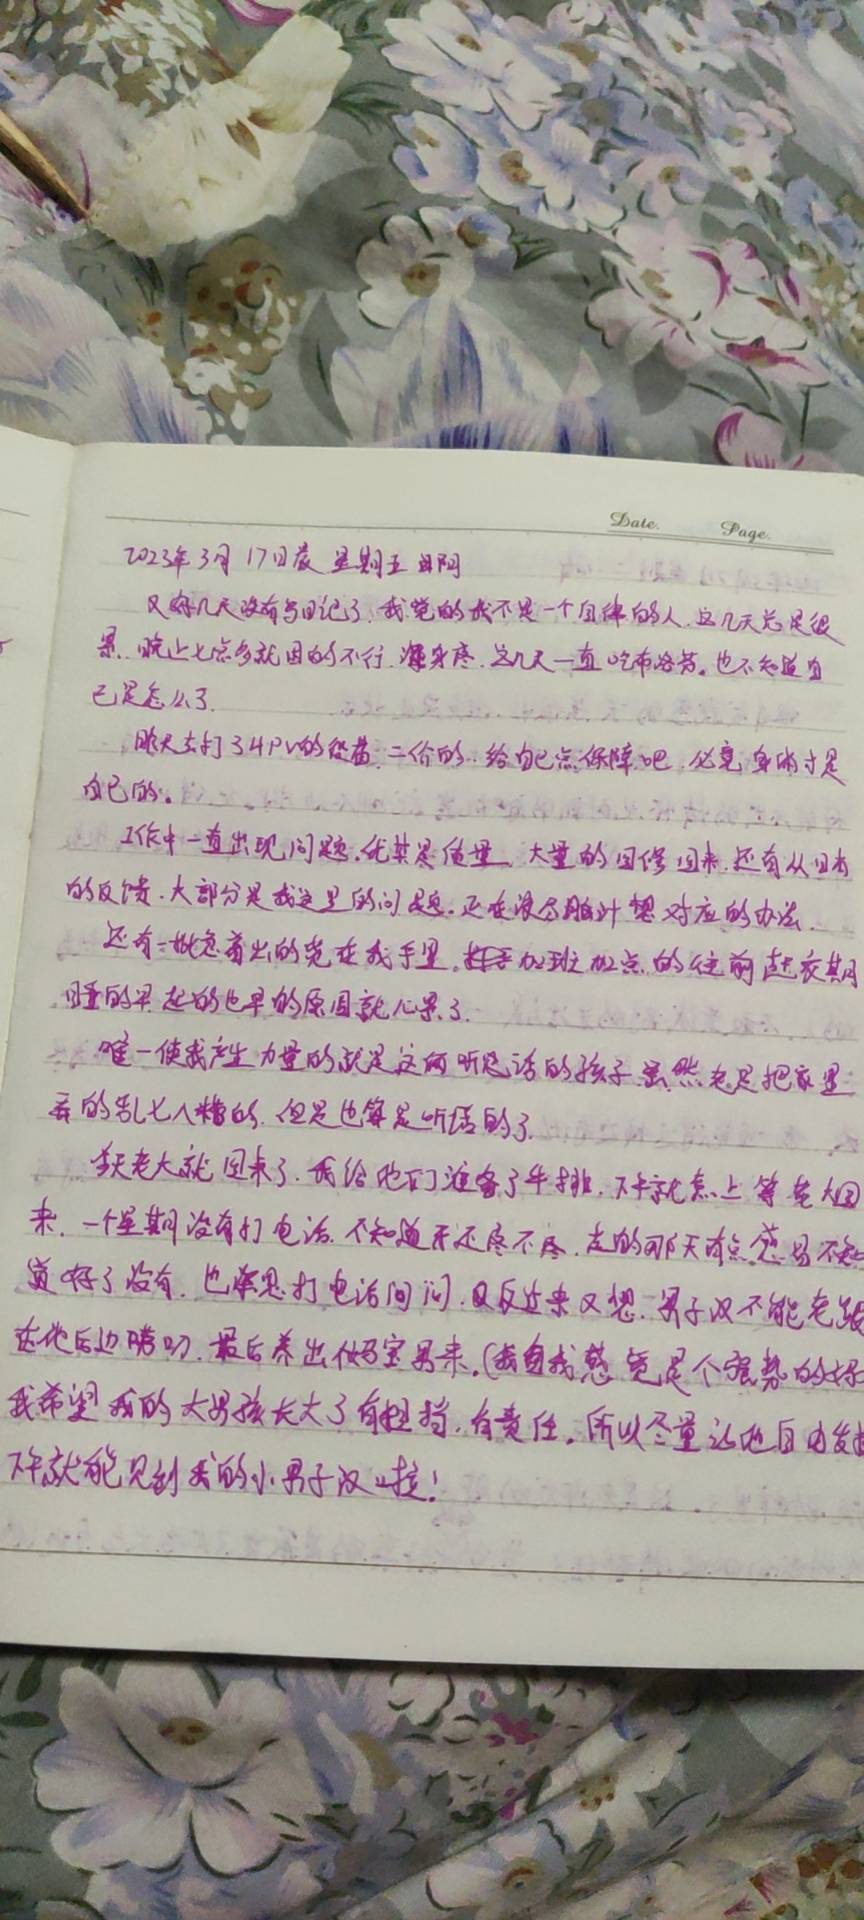 Date. Page.
2023年3月17日晨 星期五 阴
又好几天没有写日记了,我觉的我不是一个自律的人,这几天总是很
累,晚上七点多就困的不行,浑身疼,这几天一直吃布洛芬。也不知道自
己是怎么了.
昨天去打了HPV的疫苗,二价的,给自己点保障吧,必竟身体才是
自己的。
工作中一直出现问题,尤其是质量,大量的回修回来,还有从日本
的反馈,大部分是我这里的问题,正在浪分脑汁想对应的办法.
还有一批急着出的货在我手里,加班加点的往前赶衣期
睡的早起的也早的原因就心累了.
唯一使我产生力量的就是这两听话的孩子,虽然老是把家里
弄的乱七八糟的,但是也算是听话的了.
今天老大就回来了,我给他们准备了牛排,下午就煎上等老大回
来,一个星期没有打电话,不知道牙还疼不疼,走的那天有点感冒不知
道好了没有,也想打电话问问,又反过来又想,男子汉不能老跟
在他后边唠叨,最后养出妈宝男来,(我自我感觉是个强势的妈
我希望我的大男孩长大了有担当,有责任,所以尽量让他自由发
下午就能见到我的小男子汉啦!